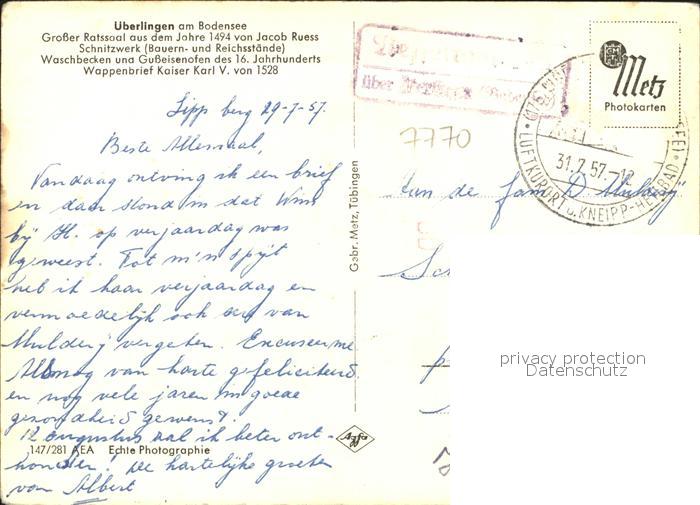 Überlingen am Bodensee
Großer Ratssaal aus dem Jahre 1494 von Jacob Ruess
Schnitzwerk (Bauern- und Reichsstände)
Waschbecken und Gußeisenofen des 16. Jahrhunderts
Wappenbrief Kaiser Karl V. von 1528
Lippberg 29-7-57.
Beste Allemaal,
Vandaag ontving ik een brief
en daar stond in dat Wim
bij H. op verjaardag was
geweest. Tot m'n spijt
heb ik haar verjaardag en
vermoedelijk ook die van
Mulderij vergeten. Excuseer me
Alsnog van harte gefeliciteerd.
en nog vele jaren in goede
gezondheid gewenst.
12 augustus zal ik beter ont-
houden! De hartelijke groeten
van Albert
147/281 AEA Echte Photographie
Agfa
Gebr. Metz, Tübingen
über
7770
Metz
Photokarten
31.7.57.-12
LUFTKURORT u. KNEIPP-HEILBAD
Aan de fam. D. Mulderij
privacy protection
Datenschutz